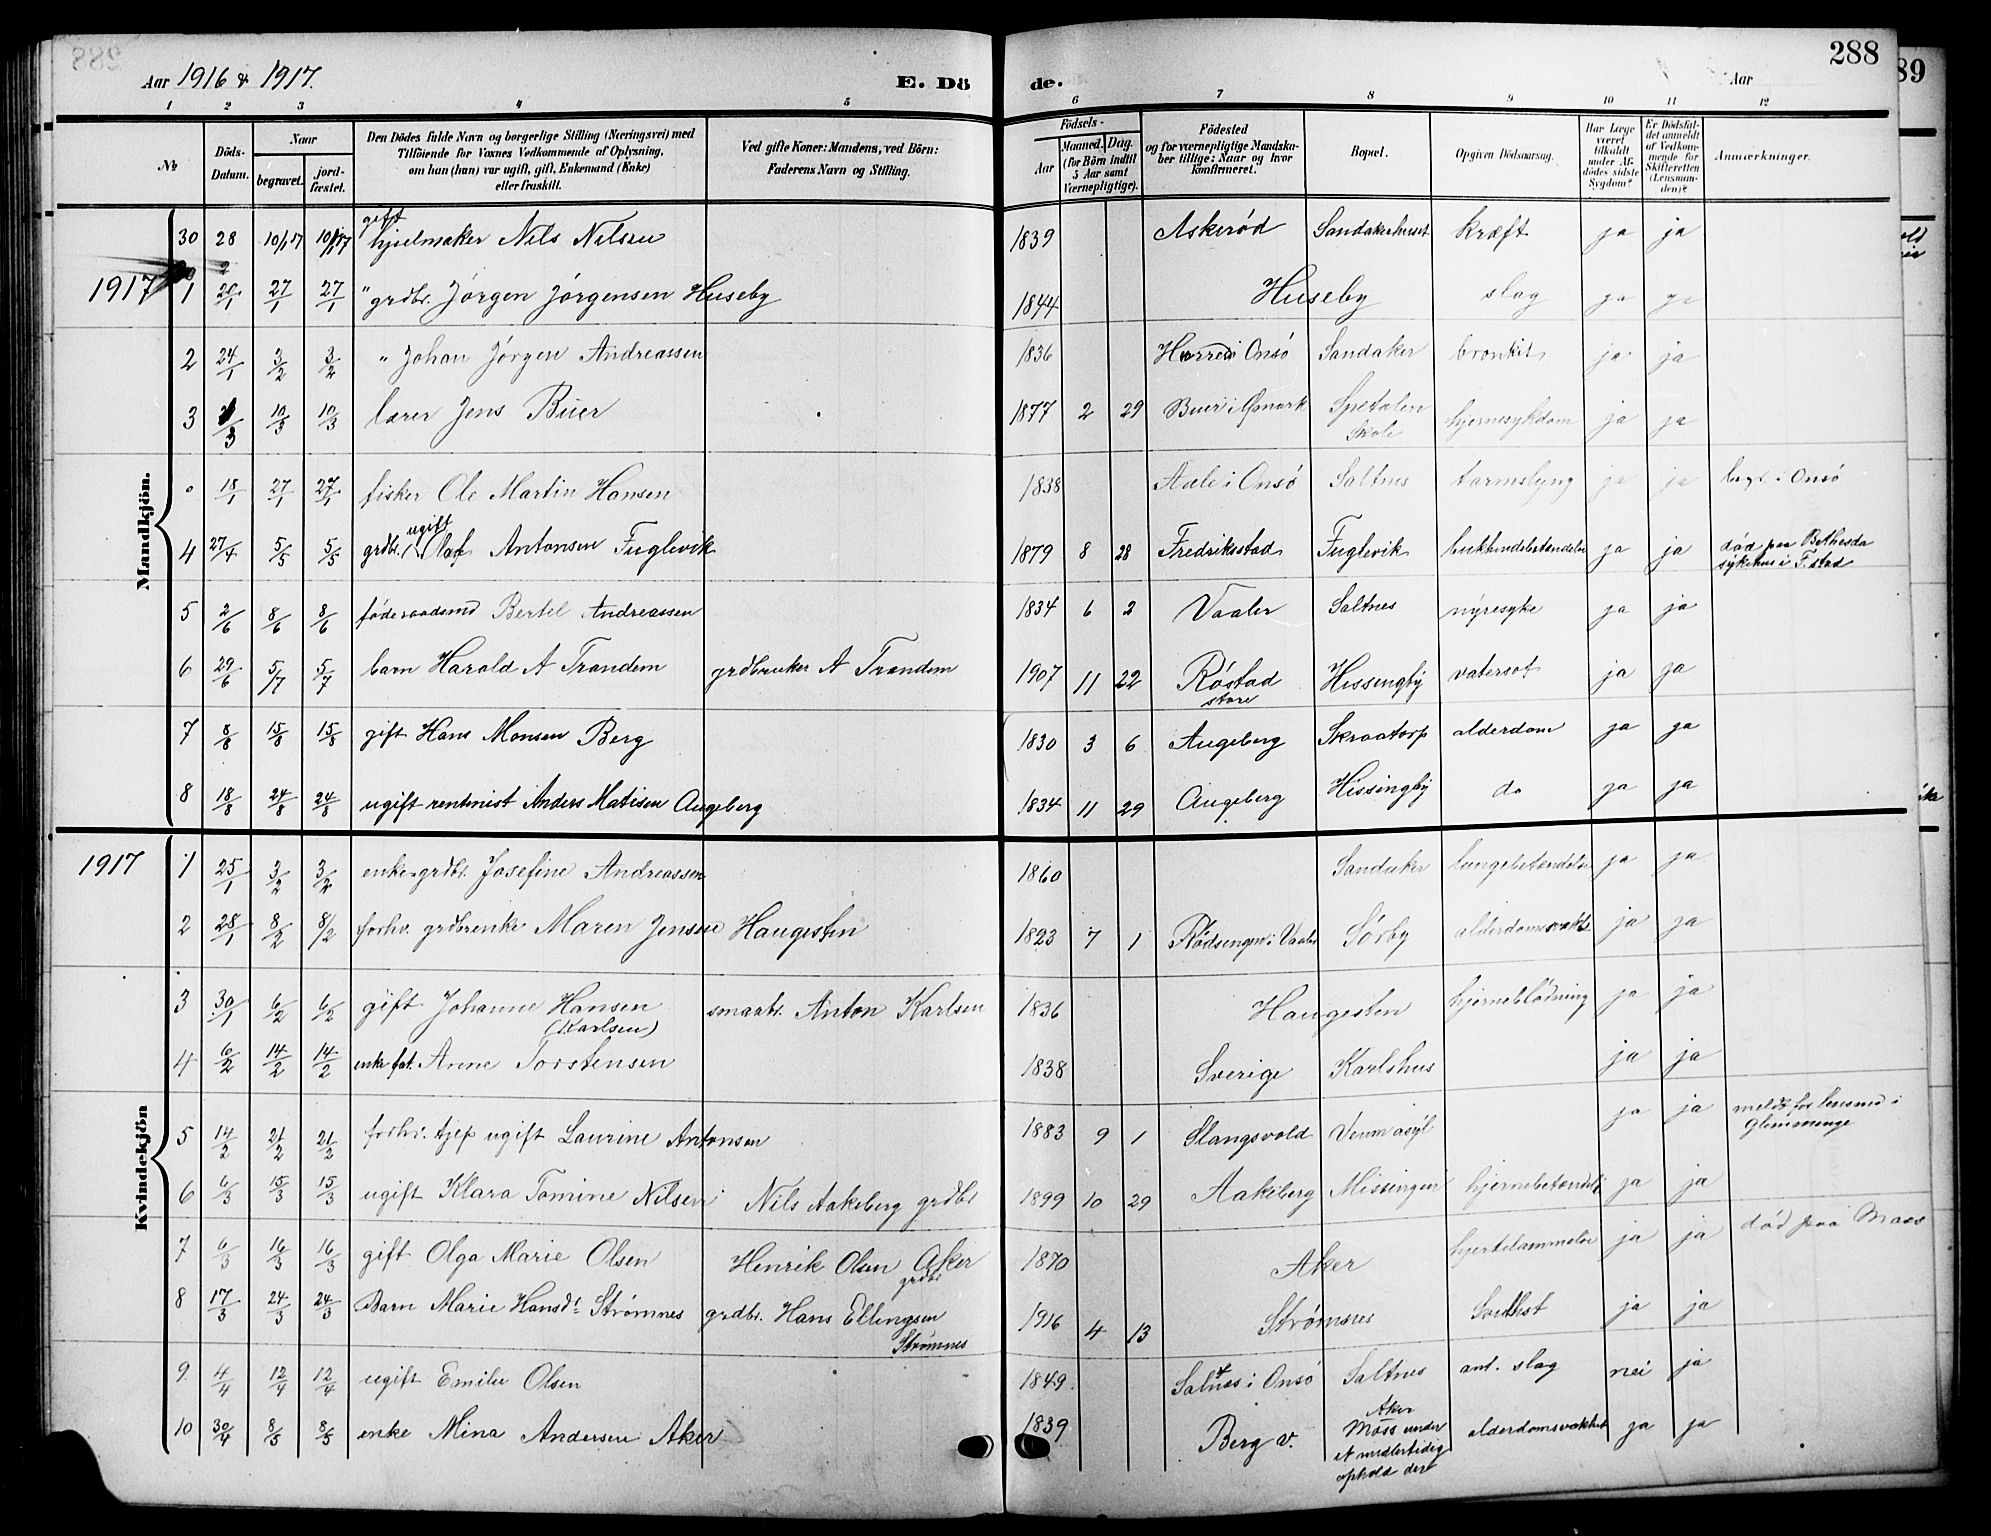 Aar 1916 & 1917.
E. Dö
de.
Aar
288
89
1 2 3 4 5 6 7 8 9 10 11 12
No
Döds-Datum.
Naar
begravet.
jord-fæstet.
Den Dödes fulde Navn og borgerlige Stilling (Næringsvei) med
Tilföiende for Voxnes Vedkommende af Oplysning,
om han (hun) var ugift, gift, Enkemand (Enke)
eller fraskilt.
Ved gifte Koner: Mandens, ved Börn:
Faderens Navn og Stilling.
Födsels-
Aar
Maaned. Dag.
(for Börn indtil
5 Aar samt
Værnepligtige).
Födested
og for værnepligtige Mandska-
ber tillige: Naar og hvor
konfirmeret.
Bopæl.
Opgiven Dödsaarsag.
Har Læge
været
tilkaldt
under Af-
dödes sidste
Sygdom?
Er Dödsfal-
det anmeldt
af Vedkom-
mende for
Skifteretten
(Lensman-
den)?
Anmærkninger.
Mandkjön.
30 28 10/1 17 10/1 17 gift hjulmaker Nils Nilsen 1839 Askerød Sandakerhuset kræft ja ja
1917 1 20/1 27/1 27/1 " grdbr. Jørgen Jørgensen Huseby 1844 Huseby slag ja ja
2 24/1 3/2 3/2 " Johan Jørgen Andreassen 1836 Horred i Onsö Sandaker bronkit ja ja
3 1/3 10/3 10/3 lærer Jens Buer 1877 2 29 Buer i Spetalen Skole hjernesykdom ja ja
° 18/1 27/1 27/1 fisker Ole Martin Hansen 1838 Aale i Onsö Saltnes tarmslyng ja ja begr. i Onsö
4 27/4 5/5 5/5 grdbr. ugift Olaf Antonsen Fuglevik 1879 8 28 Fredriksstad Fuglevik bukhindebetændelse ja ja død paa Bethesda sykehus i F.stad
5 2/6 8/6 8/6 føderaadsmd Bertel Andreassen 1834 6 2 Vaaler Saltnes nyresyke ja ja
6 29/6 5/7 5/7 barn Harald A Trandem grdbruker A Trandem 1907 11 22 Röstad store Hissingby vatersot ja ja
7 8/8 15/8 15/8 gift Hans Monsen Berg 1830 3 6 Augeberg Skraatorp alderdom ja ja
8 18/8 24/8 24/8 ugift rentenist Anders Matisen Augeberg 1834 11 29 Augeberg Hissingby do ja ja
Kvindekjön
1917 1 25/1 3/2 3/2 enke grdbr. Josefine Andreassen 1860 Sandaker lungebetændelse ja ja
2 28/1 8/2 8/2 forhv. grdbrenke Maren Jensen Haugesten 1823 7 1 Rödsengen i Vaaler Sörby alderdomssvakh. ja ja
3 30/1 6/2 6/2 gift Johanne Hansen (Karlsen) smaabr. Anton Karlsen 1836 Haugesten hjerneblödning ja ja
4 6/2 14/2 14/2 enke fat. Anne Torstensen 1838 Sverige Karlshus ja ja
5 14/2 21/2 21/2 forhv. tjep ugift Laurine Antonsen 1883 9 1 Slangsvold Veum asyl ja ja meldt for lensmd i Glemmenge
6 6/3 15/3 15/3 ugift Klara Tomine Nilsen Nils Aakeberg grdbr 1899 10 29 Aakeberg Missingen hjernebetændels ja ja
7 6/3 16/3 16/3 gift Olga Marie Olsen Henrik Olsen Aker grdbr 1870 Aker hjertelammelse ja ja død paa Moss
8 17/3 24/3 24/3 Barn Marie Hansdt Strømnes grdbr. Hans Ellingsen Strømnes 1916 4 13 Strømsnes ja ja
9. 4/4 12/4 12/4 ugift Emilie Olsen 1849. Saltnes i Onsö Saltnes ant. slag nei ja
10 30/4 8/5 8/5 enke Mina Andersen Aker 1839 Berg v. Aker Moss under et midlertidig ophold der alderdomssvakhet ja ja